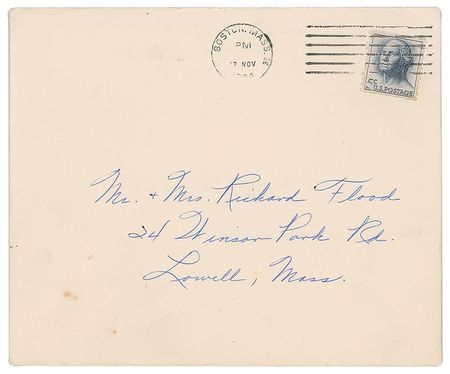 BOSTON, MASS.
PM
17 NOV
5c
U.S. POSTAGE
Mr. + Mrs. Richard Flood
24 Winsor Park Rd.
Lowell, Mass.